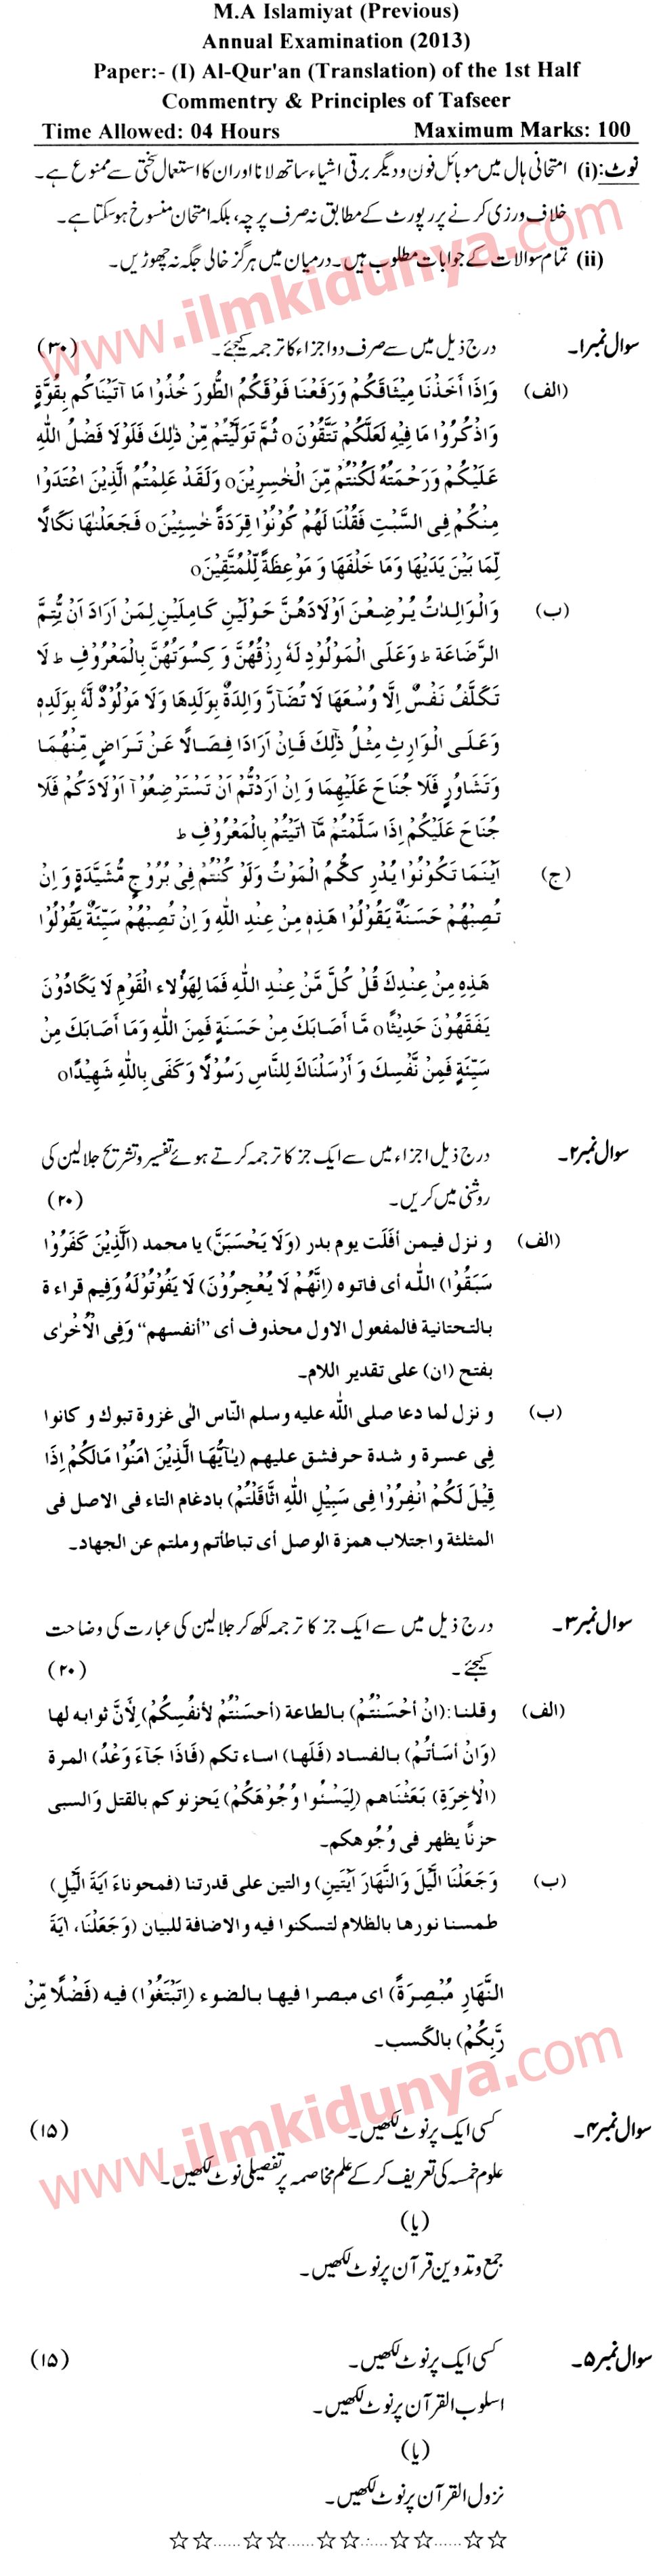 M.A Islamiyat (Previous)
Annual Examination (2013)
Paper:- (I) Al-Qur'an (Translation) of the 1st Half
Commentry & Principles of Tafseer
Time Allowed: 04 Hours Maximum Marks: 100
نوٹ: (i) امتحانی ہال میں موبائل فون و دیگر برقی اشیاء ساتھ لانا اور ان کا استعمال سختی سے ممنوع ہے۔
خلاف ورزی کرنے پر رپورٹ کے مطابق نہ صرف پرچہ، بلکہ امتحان منسوخ ہو سکتا ہے۔
(ii) تمام سوالات کے جوابات مطلوب ہیں۔ درمیان میں ہرگز خالی جگہ نہ چھوڑیں۔
www.ilmkidunya.com
سوال نمبر۱۔ درج ذیل میں سے صرف دو اجزاء کا ترجمہ کیجئے۔ (۳۰)
(الف) وَاِذَا أَخَذْنَا مِيْثَاقَكُمْ وَرَفَعْنَا فَوْقَكُمُ الطُّورَ خُذُوْا مَا آتَيْنَاكُم بِقُوَّةٍ
وَاذْكُرُوْا مَا فِيْهِ لَعَلَّكُمْ تَتَّقُوْنَ٥ ثُمَّ تَوَلَّيْتُمْ مِّنْ ذٰلِكَ فَلَوْلَا فَضْلُ اللّٰهِ
عَلَيْكُمْ وَرَحْمَتُهُ لَكُنْتُمْ مِّنَ الْخٰسِرِيْنَ٥ وَلَقَدْ عَلِمْتُمُ الَّذِيْنَ اعْتَدَوْا
مِنْكُمْ فِى السَّبْتِ فَقُلْنَا لَهُمْ كُوْنُوْا قِرَدَةً خٰسِئِيْنَ٥ فَجَعَلْنٰهَا نَكَالًا
لِّمَا بَيْنَ يَدَيْهَا وَمَا خَلْفَهَا وَ مَوْعِظَةً لِّلْمُتَّقِيْنَ٥
(ب) وَالْوَالِدٰتُ يُرْضِعْنَ اَوْلَادَهُنَّ حَوْلَيْنِ كَامِلَيْنِ لِمَنْ اَرَادَ اَنْ يُّتِمَّ
الرَّضَاعَةَ ط وَعَلَى الْمَوْلُوْدِ لَهٗ رِزْقُهُنَّ وَ كِسْوَتُهُنَّ بِالْمَعْرُوْفِ ط لَا
تَكَلَّفُ نَفْسٌ اِلَّا وُسْعَهَا لَا تُضَارَّ وَالِدَةٌ بِوَلَدِهَا وَلَا مَوْلُوْدٌ لَّهٗ بِوَلَدِهٖ
وَعَلَى الْوَارِثِ مِثْلُ ذٰلِكَ فَاِنْ اَرَادَا فِصَالًا عَنْ تَرَاضٍ مِّنْهُمَا
وَتَشَاوُرٍ فَلَا جُنَاحَ عَلَيْهِمَا وَ اِنْ اَرَدْتُّمْ اَنْ تَسْتَرْضِعُوْا اَوْلَادَكُمْ فَلَا
جُنَاحَ عَلَيْكُمْ اِذَا سَلَّمْتُمْ مَّآ اٰتَيْتُمْ بِالْمَعْرُوْفِ ط
(ج) اَيْنَمَا تَكُوْنُوْا يُدْرِ كُكُّمُ الْمَوْتُ وَلَوْ كُنْتُمْ فِىْ بُرُوْجٍ مُّشَيَّدَةٍ وَ اِنْ
تُصِبْهُمْ حَسَنَةٌ يَقُوْلُوْا هٰذِهٖ مِنْ عِنْدِ اللّٰهِ وَ اِنْ تُصِبْهُمْ سَيِّئَةٌ يَقُوْلُوْا
هَذِهِ مِنْ عِنْدِكَ قُلْ كُلٌّ مِّنْ عِنْدِ اللّٰهِ فَمَا لِهَؤُلاء الْقَوْمِ لَا يَكَادُوْنَ
يَفْقَهُوْنَ حَدِيْثًا٥ مَّا أَصَابَكَ مِنْ حَسَنَةٍ فَمِنَ اللّٰهِ وَمَا أَصَابَكَ مِنْ
سَيِّئَةٍ فَمِنْ نَّفْسِكَ وَ أَرْسَلْنَاكَ لِلنَّاسِ رَسُوْلًا وَ كَفَى بِاللّٰهِ شَهِيْدًا٥
سوال نمبر۲۔ درج ذیل اجزاء میں سے ایک جز کا ترجمہ کرتے ہوئے تفسیر و تشریح جلالین کی
روشنی میں کریں۔ (۲۰)
(الف) و نزل فيمن أفلَت يوم بدر (وَلَا يَحْسَبَنَّ) يا محمد (الَّذِيْنَ كَفَرُوْا
سَبَقُوْا) اللّٰه أى فاتوه (اِنَّهُمْ لَا يُعْجِرُوْنَ) لَا يَفُوْتُوْلَهُ وَفِيم قراءة
بالتحتانية فالمفعول الاول محذوف أى "أنفسهم" وَفِى الْاُخْرٰى
بفتح (ان) على تقدير اللام۔
(ب) و نزل لما دعا صلى اللّٰه عليه وسلم النّاس الٰى غزوة تبوك و كانوا
فِى عسرة و شدة حر فشق عليهم (يٰاَيُّهَا الَّذِيْنَ اٰمَنُوْا مَالَكُمْ اِذَا
قِيْلَ لَكُمْ انْفِرُوْا فِى سَبِيْلِ اللّٰهِ اثَّاقَلْتُمْ) بادغام التاء فى الاصل فى
المثلثة و اجتلاب همزة الوصل أى تباطأتم وملتم عن الجهاد۔
سوال نمبر۳۔ درج ذیل میں سے ایک جز کا ترجمہ لکھ کر جلالین کی عبارت کی وضاحت
کیجئے۔ (۲۰)
(الف) وقلنا: (انْ أحْسَنْتُمْ) بالطاعة (أحسَنْتُمْ لأنفُسِكُمْ) لِأَنَّ ثوابه لها
(وَانْ أسَأتُمْ) بالفساد (فَلَهَا) اساء تكم (فَاذَا جَآءَ وَعْدُ) المرة
(الْاٰخِرَةِ) بَعَثْنَاهم (لِيَسْنُوا وُجُوْهَكُمْ) يَحزنو كم بالقتل وَالسبى
حزنًا يظهر فى وُجُوهكم۔
(ب) (وَجَعَلْنَا الَّيْلَ وَالنَّهَارَ آيَتَينِ) والتين على قدرتنا (فمحوناءَ اَيَةَ الَّيْلِ)
طمسنا نورها بالظلام لتسكنوا فيه والاضافة للبيان (وَجَعَلْنَا، اٰيَةَ
النَّهَارِ مُبْصِرَةً) اى مبصرا فيها بالضوء (اِتَبْتَغُوْا) فيه (فَضْلًا مِّنْ
رَّبِّكُمْ) بالكَسب۔
www.ilmkidunya.com
سوال نمبر۴۔ کسی ایک پر نوٹ لکھیں۔ (۱۵)
علوم خمسہ کی تعریف کر کے علم مخاصمہ پر تفصیلی نوٹ لکھیں۔
(یا)
جمع و تدوین قرآن پر نوٹ لکھیں۔
سوال نمبر۵۔ کسی ایک پر نوٹ لکھیں۔ (۱۵)
اسلوب القرآن پر نوٹ لکھیں۔
(یا)
نزول القرآن پر نوٹ لکھیں۔